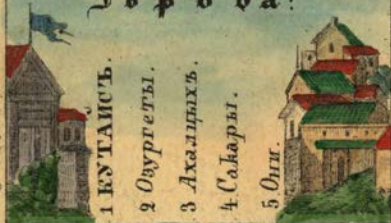 Города:
1 КУТАИСЪ.
2 Озургеты.
3 Ахалцыхъ.
4 Сакары.
5 Они.